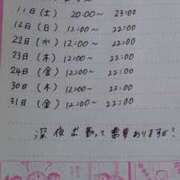 11日(土) 20:00～ 23:00
12日(日) 12:00～ 22:00
22日(水) 12:00～ 22:00
23日(木) 12:00～ 22:00
24日(金) 12:00～ 22:00
30日(木) 12:00～ 22:00
31日(金) 12:00～ 22:00
深夜出勤で
ありますます!